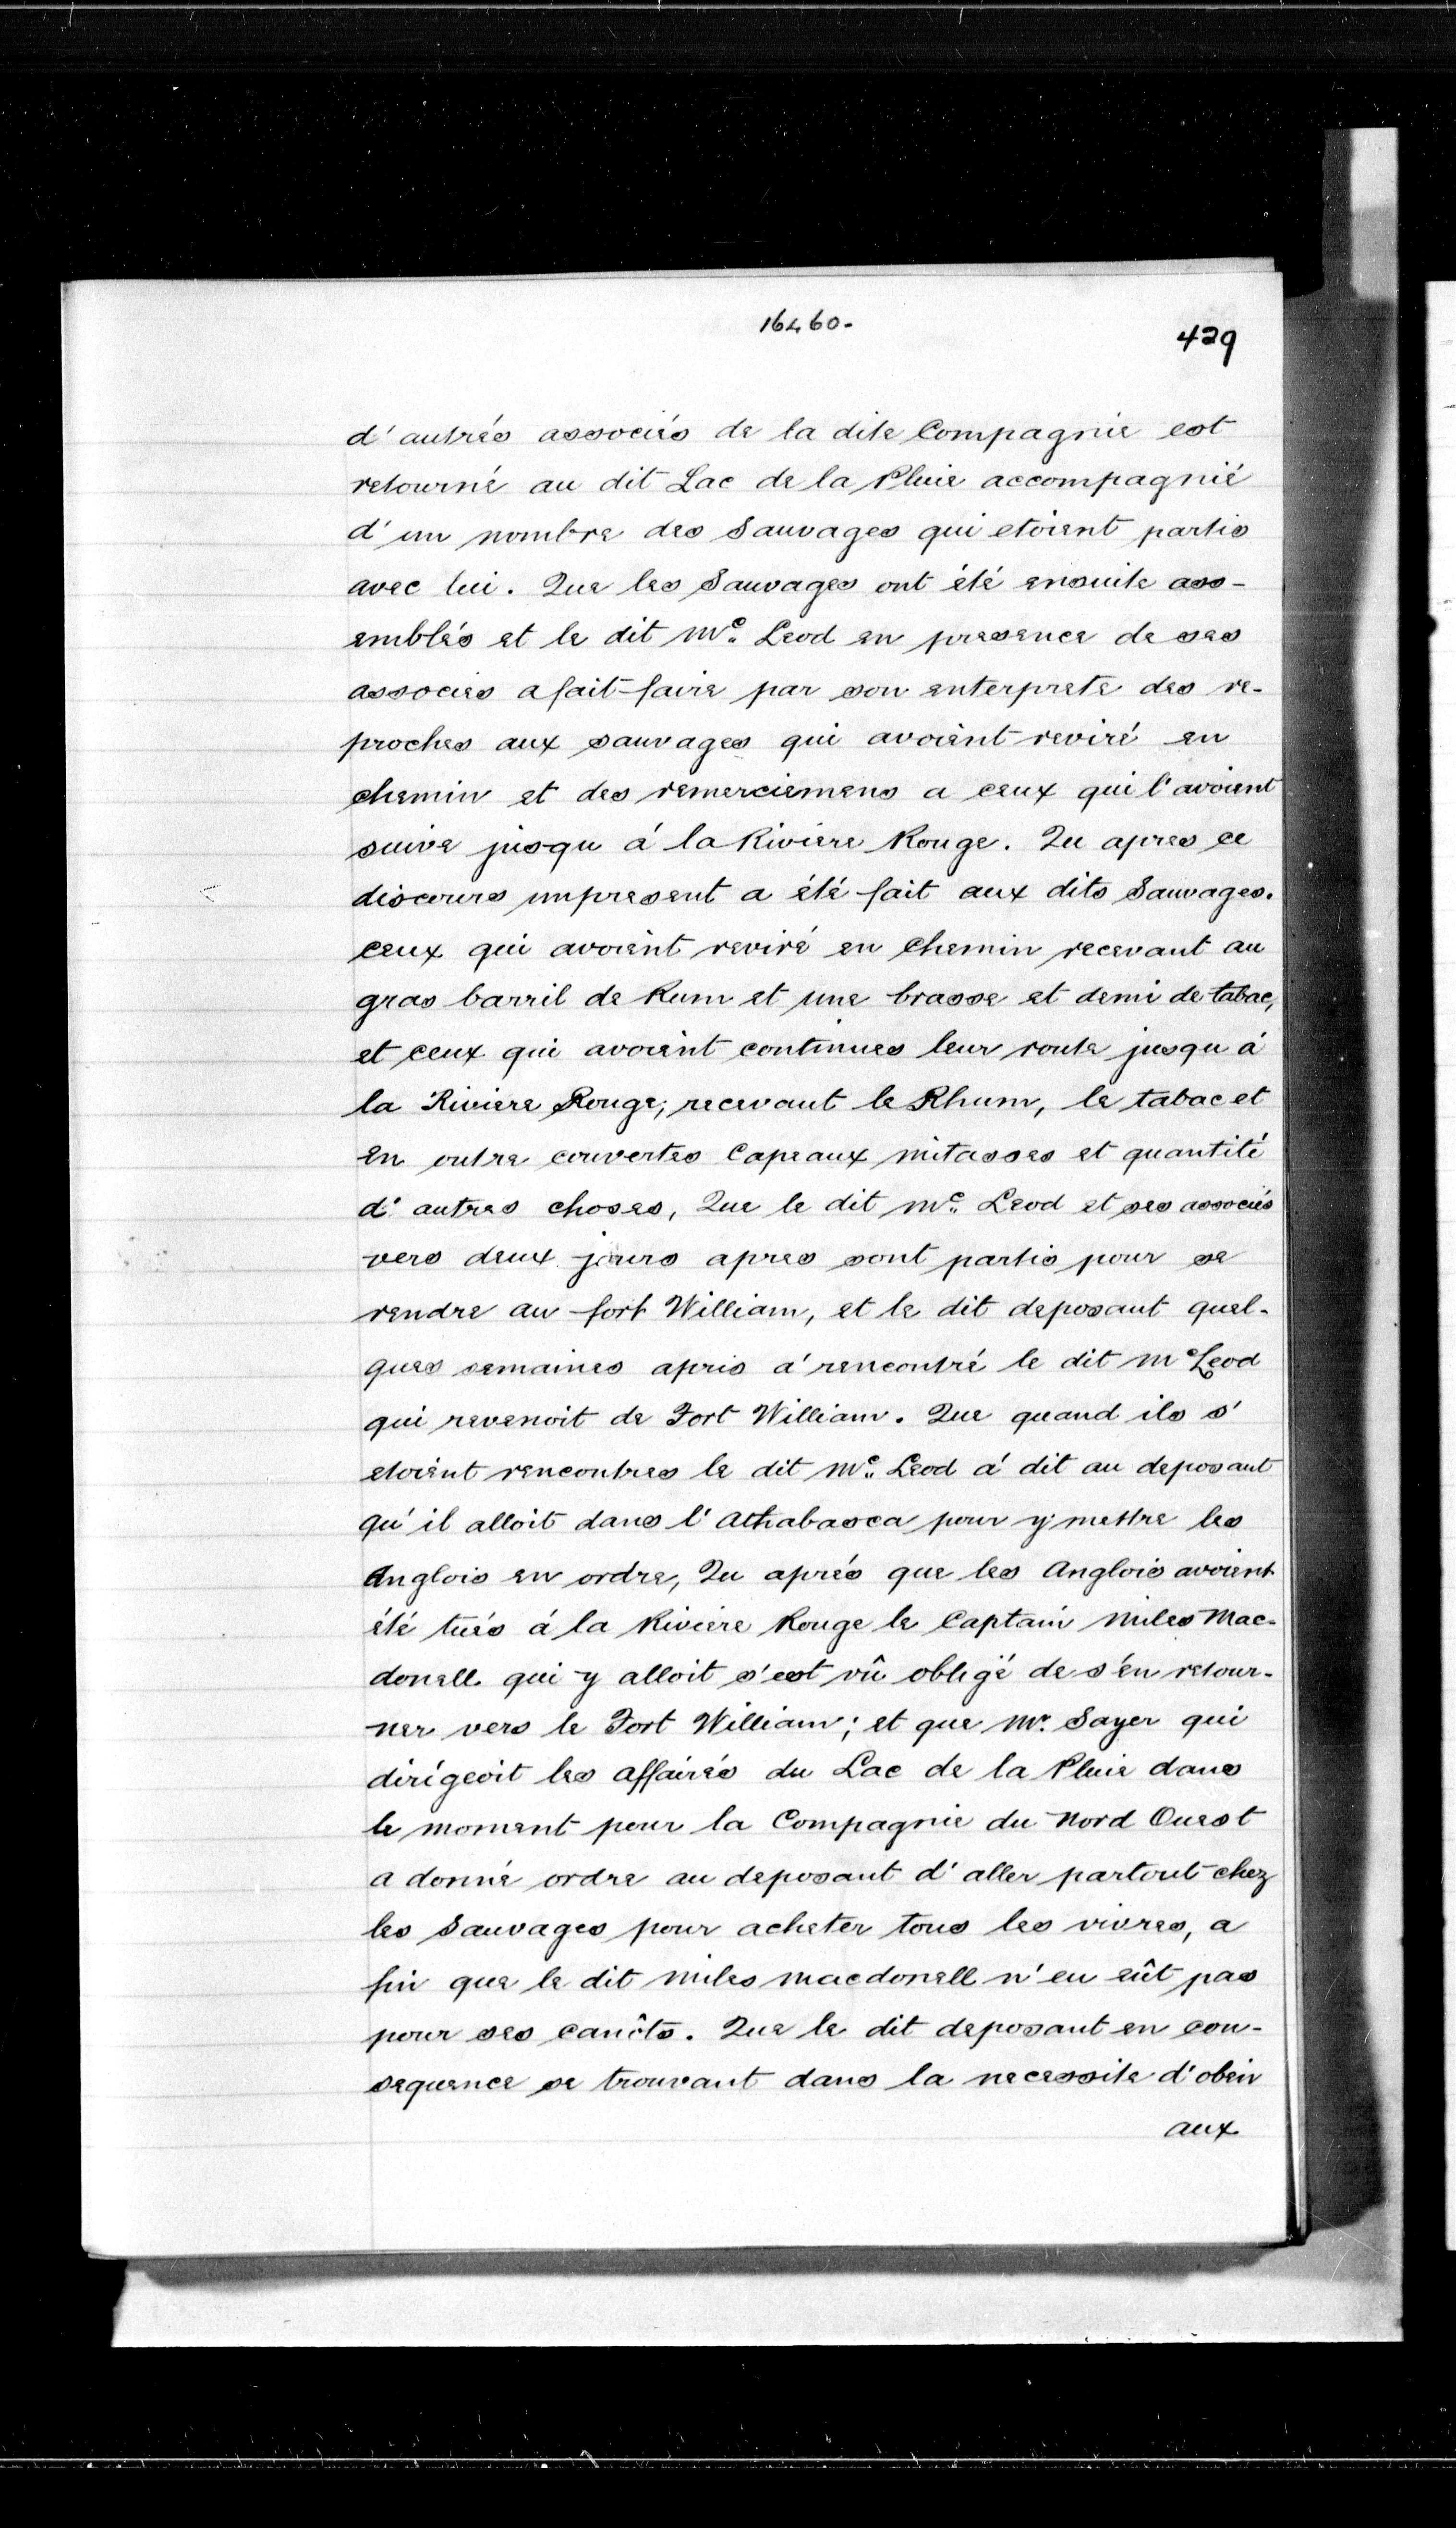 16460.
429
d'autrés associés de la dite Compagnie est
retourné au dit Lac de la Pluie accompagnié
d'un nombre des Sauvages qui etoient partis
avec lui. Que les Sauvages ont été ensuite ass-
emblés et le dit Mc. Leod en presence de ses
associes a fait faire par son enterprete des re-
proches aux sauvages qui avoient reviré en
chemin et des remerciemens a ceux qui l'avoient
suive jusqu á la Riviere Rouge. Qu apres ce
discours un present a été fait aux dits Sauvages.
ceux qui avoient reviré en chemin recevant au
gras barril de Rum et une brasse et demi de tabac,
et ceux qui avoient continues leur route jusqu á
la Riviere Rouge, recevant le Rhum, le tabac et
en outre couvertes Capeaux mitasses et quantité
d'autres choses, Que le dit Mc. Leod et ses associés
vers deux jours apres sont partis pour se
rendre au fort William, et le dit deposant quel-
ques semaines apris á rencontré le dit McLeod
qui revenoit de Fort William. Que quand ils s'
etoient rencontres le dit Mc. Leod á dit au deposant
qu'il alloit dans l'Athabasca pour y mettre les
Anglois en ordre, Qu aprés que les Anglois avoient
été tués á la Riviere Rouge le Captain Miles Mac-
donell qui y alloit s'est vû obligé de s'en retour-
ner vers le Fort William; et que Mr. Sayer qui
dirigeoit les affairés du Lac de la Pluie dans
le moment pour la Compagnie du Nord Ouest
a donné ordre au deposant d'aller partout chez
les Sauvages pour acheter tous les vivres, a
fin que le dit Miles Macdonell n'eu eût pas
pour ses canôts. Que le dit deposant en con-
sequence se trouvant dans la necessite d'obeir
aux